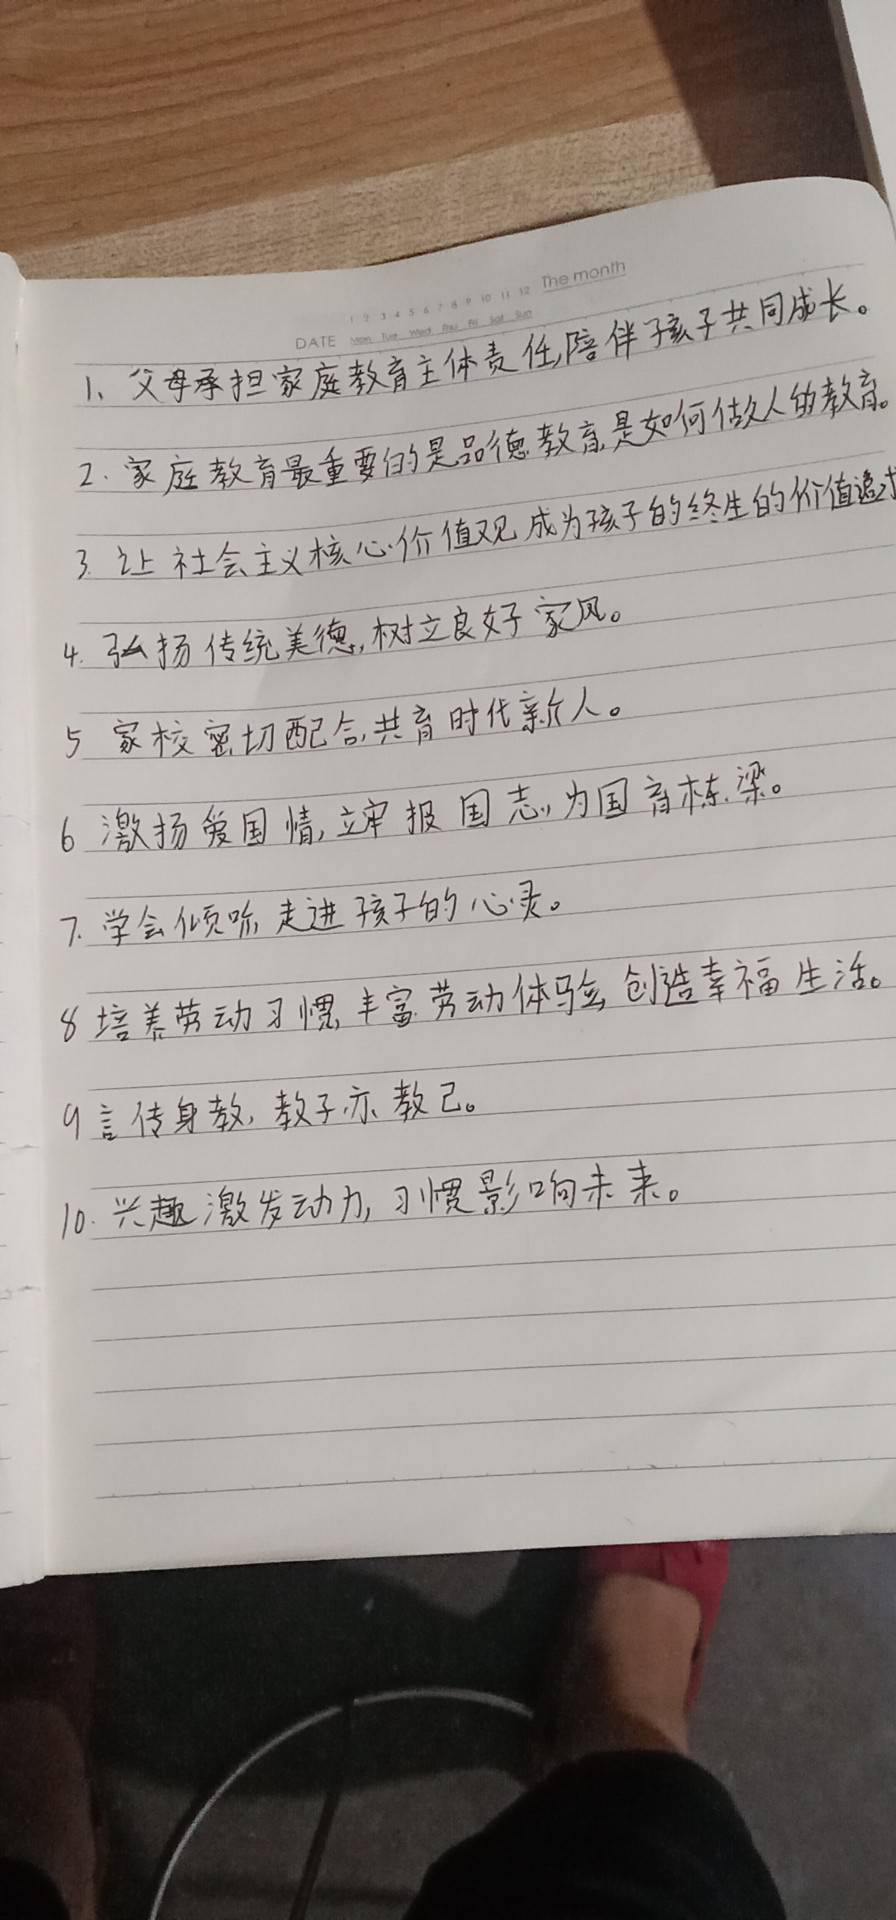 1 2 3 4 5 6 7 8 9 10 11 12 The month
DATE Mon Tue Wed Thu Fri Sat Sun
1、父母承担家庭教育主体责任,陪伴孩子共同成长。
2.家庭教育最重要的是品德教育,是如何做人的教育。
3.让社会主义核心价值观成为孩子的终生的价值追求
4.弘扬传统美德,树立良好家风。
5 家校密切配合,共育时代新人。
6 激扬爱国情,立牢报国志,为国育栋梁。
7.学会倾听,走进孩子的心灵。
8 培养劳动习惯,丰富劳动体验,创造幸福生活。
9 言传身教,教子亦教己。
10.兴趣激发动力,习惯影响未来。